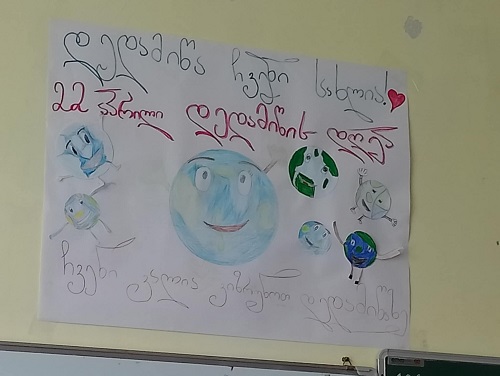 დედამიწა ჩვენი სახლია!
22 აპრილი დედამიწის დღე
ჩვენი ვალია ვიზრუნოთ დედამიწაზე